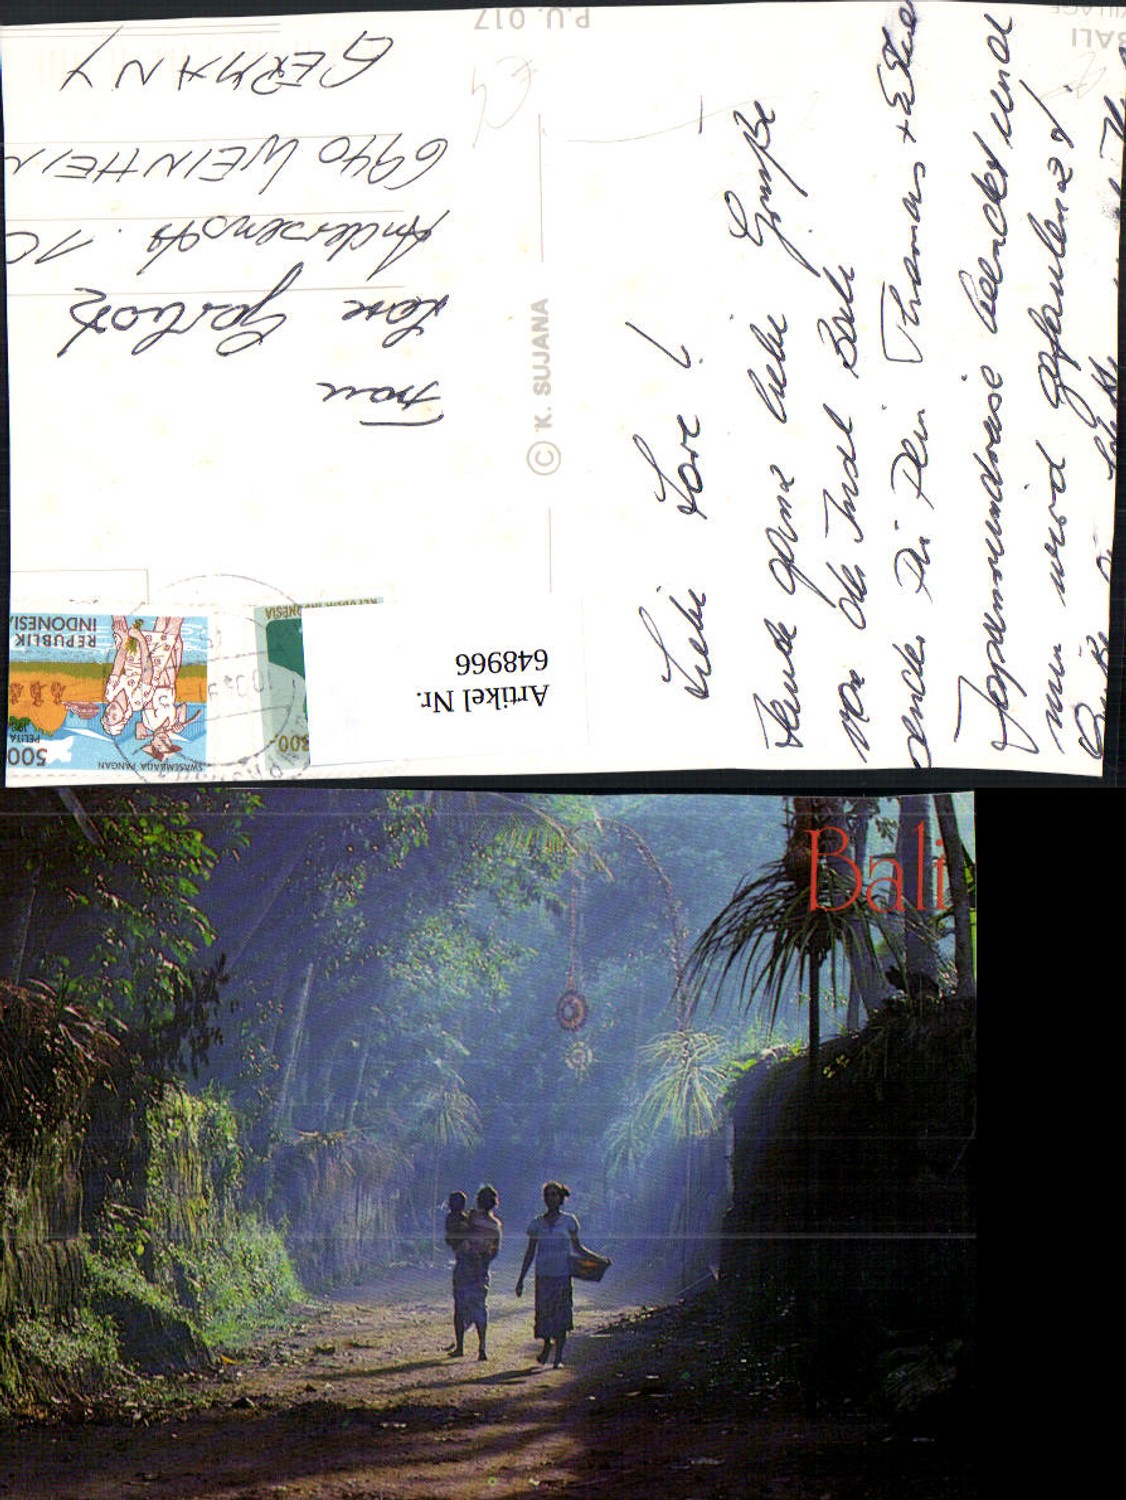 BALI
VILLAGE
P.U. 017
Liebe Lore!
Heute ganz liebe Grüße
von der Insel Bali
senden Dir Dein Thomas +
Japanrundreise beendet und
nun wird gefaulenzt!
© K. SUJANA
Frau
Lore
Andersenstr. 10
6940 WEINHEIM
GERMANY
Artikel Nr.
648966
REPUBLIK INDONESIA
300.-
REPUBLIK
INDONESIA
PELITA
500
SWASEMBADA PANGAN
Bali